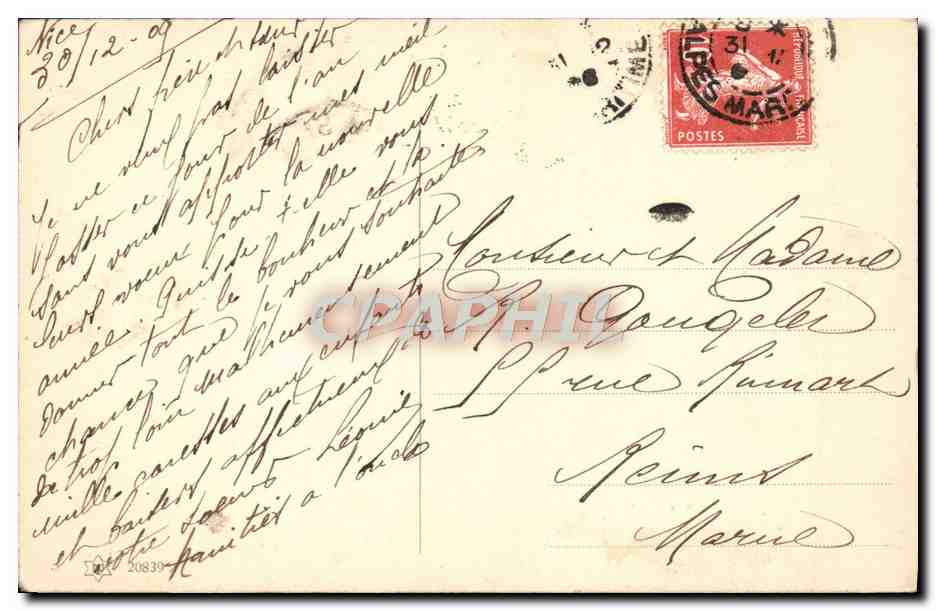 Nice
30/12-09
Chers frère et sœur
Je ne veux pas laisser
passer ce jour de l'an
sans vous apporter mes meil
leurs vœux pour la nouvelle
année. Puisse t-elle vous
donner tout le bonheur et la
chance que je vous souhaite
de trop loin malheureusement
mille caresses aux enfants
et baisers affectueux de
votre sœur Léonie
Amitiés à l'oncle
20839
ALPES MARITIMES
31
RÉPUBLIQUE FRANÇAISE
10
POSTES
Monsieur et Madame
rue
Reims
Marne
CPAPHIL